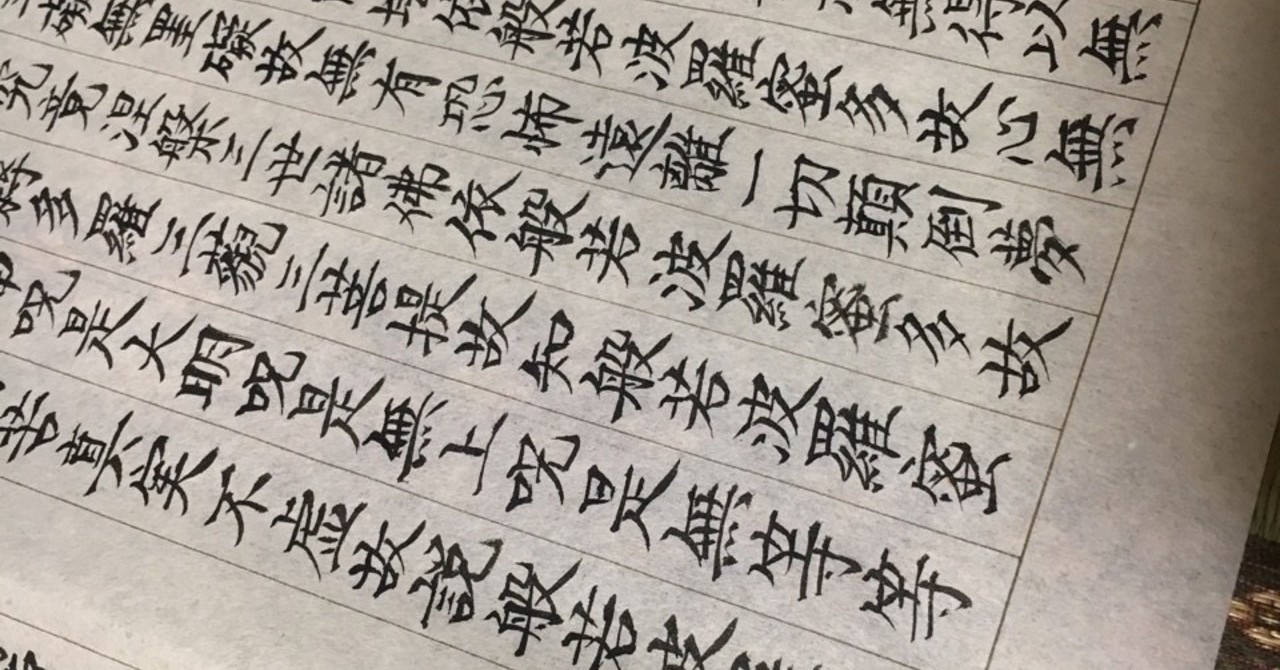 無得以無
埵依般若波羅蜜多故心無
礙無罣礙故無有恐怖遠離一切顛倒夢
究竟涅槃三世諸佛依般若波羅蜜多故
耨多羅三藐三菩提故知般若波羅蜜
呪是大明呪是無上呪是無等等
苦真実不虚故説般若波